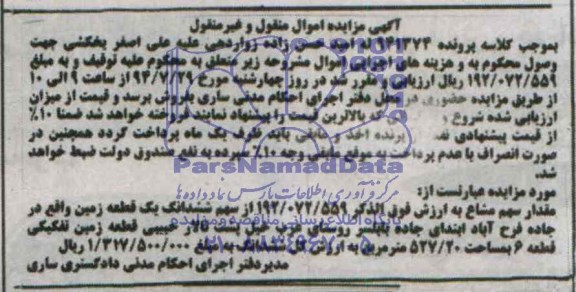 آگهی مزایده اموال منقول و غیر منقول
بموجب کلاسه پرونده ۹۴۱۳۷۴ له امید حسن زاده زواردهی علیه علی اصغر بخکشی جهت
وصول محکوم به و هزینه های اجرایی اموال مشروحه زیر متعلق به محکوم علیه توقیف و به مبلغ
۱۹۲/۰۷۲/۵۵۹ ریال ارزیابی و مقرر شد در روز چهارشنبه مورخ ۹۴/۷/۲۹ از ساعت ۹ الی ۱۰
از طریق مزایده حضوری در محل دفتر اجرای احکام مدنی ساری بفروش برسد و قیمت از میزان
ارزیابی شده شروع و که بالاترین قیمت را پیشنهاد نمایند فروخته خواهد شد ضمنا ۱۰٪
از قیمت پیشنهادی برنده اخذ مابقی باید ظرف یک ماه پرداخت گردد همچنین در
صورت انصراف یا عدم پرداخت به موقع مابقی وجه ۱۰٪ سپرده به نفع صندوق دولت ضبط خواهد
شد.
ParsNamadData
مرکز فرآوری اطلاعات پارس نماد داده ها
مورد مزایده عبارتست از:
مقدار سهم مشاع به ارزش فوق الذکر ۱۹۲/۰۷۲/۵۵۹ از سهم ششدانگ یک قطعه زمین واقع در
پایگاه اطلاع رسانی مناقصه و مزایده
جاده فرح آباد ابتدای جاده بابلسر روستای قطعه زمین تفکیکی
قطعه ۶ بمساحت ۵۲۷/۲۰ مترمربع به ارزش کل ششدانگ به مبلغ ۱/۳۱۷/۵۰۰/۰۰۰ ریال
مدیر دفتر اجرای احکام مدنی دادگستری ساری